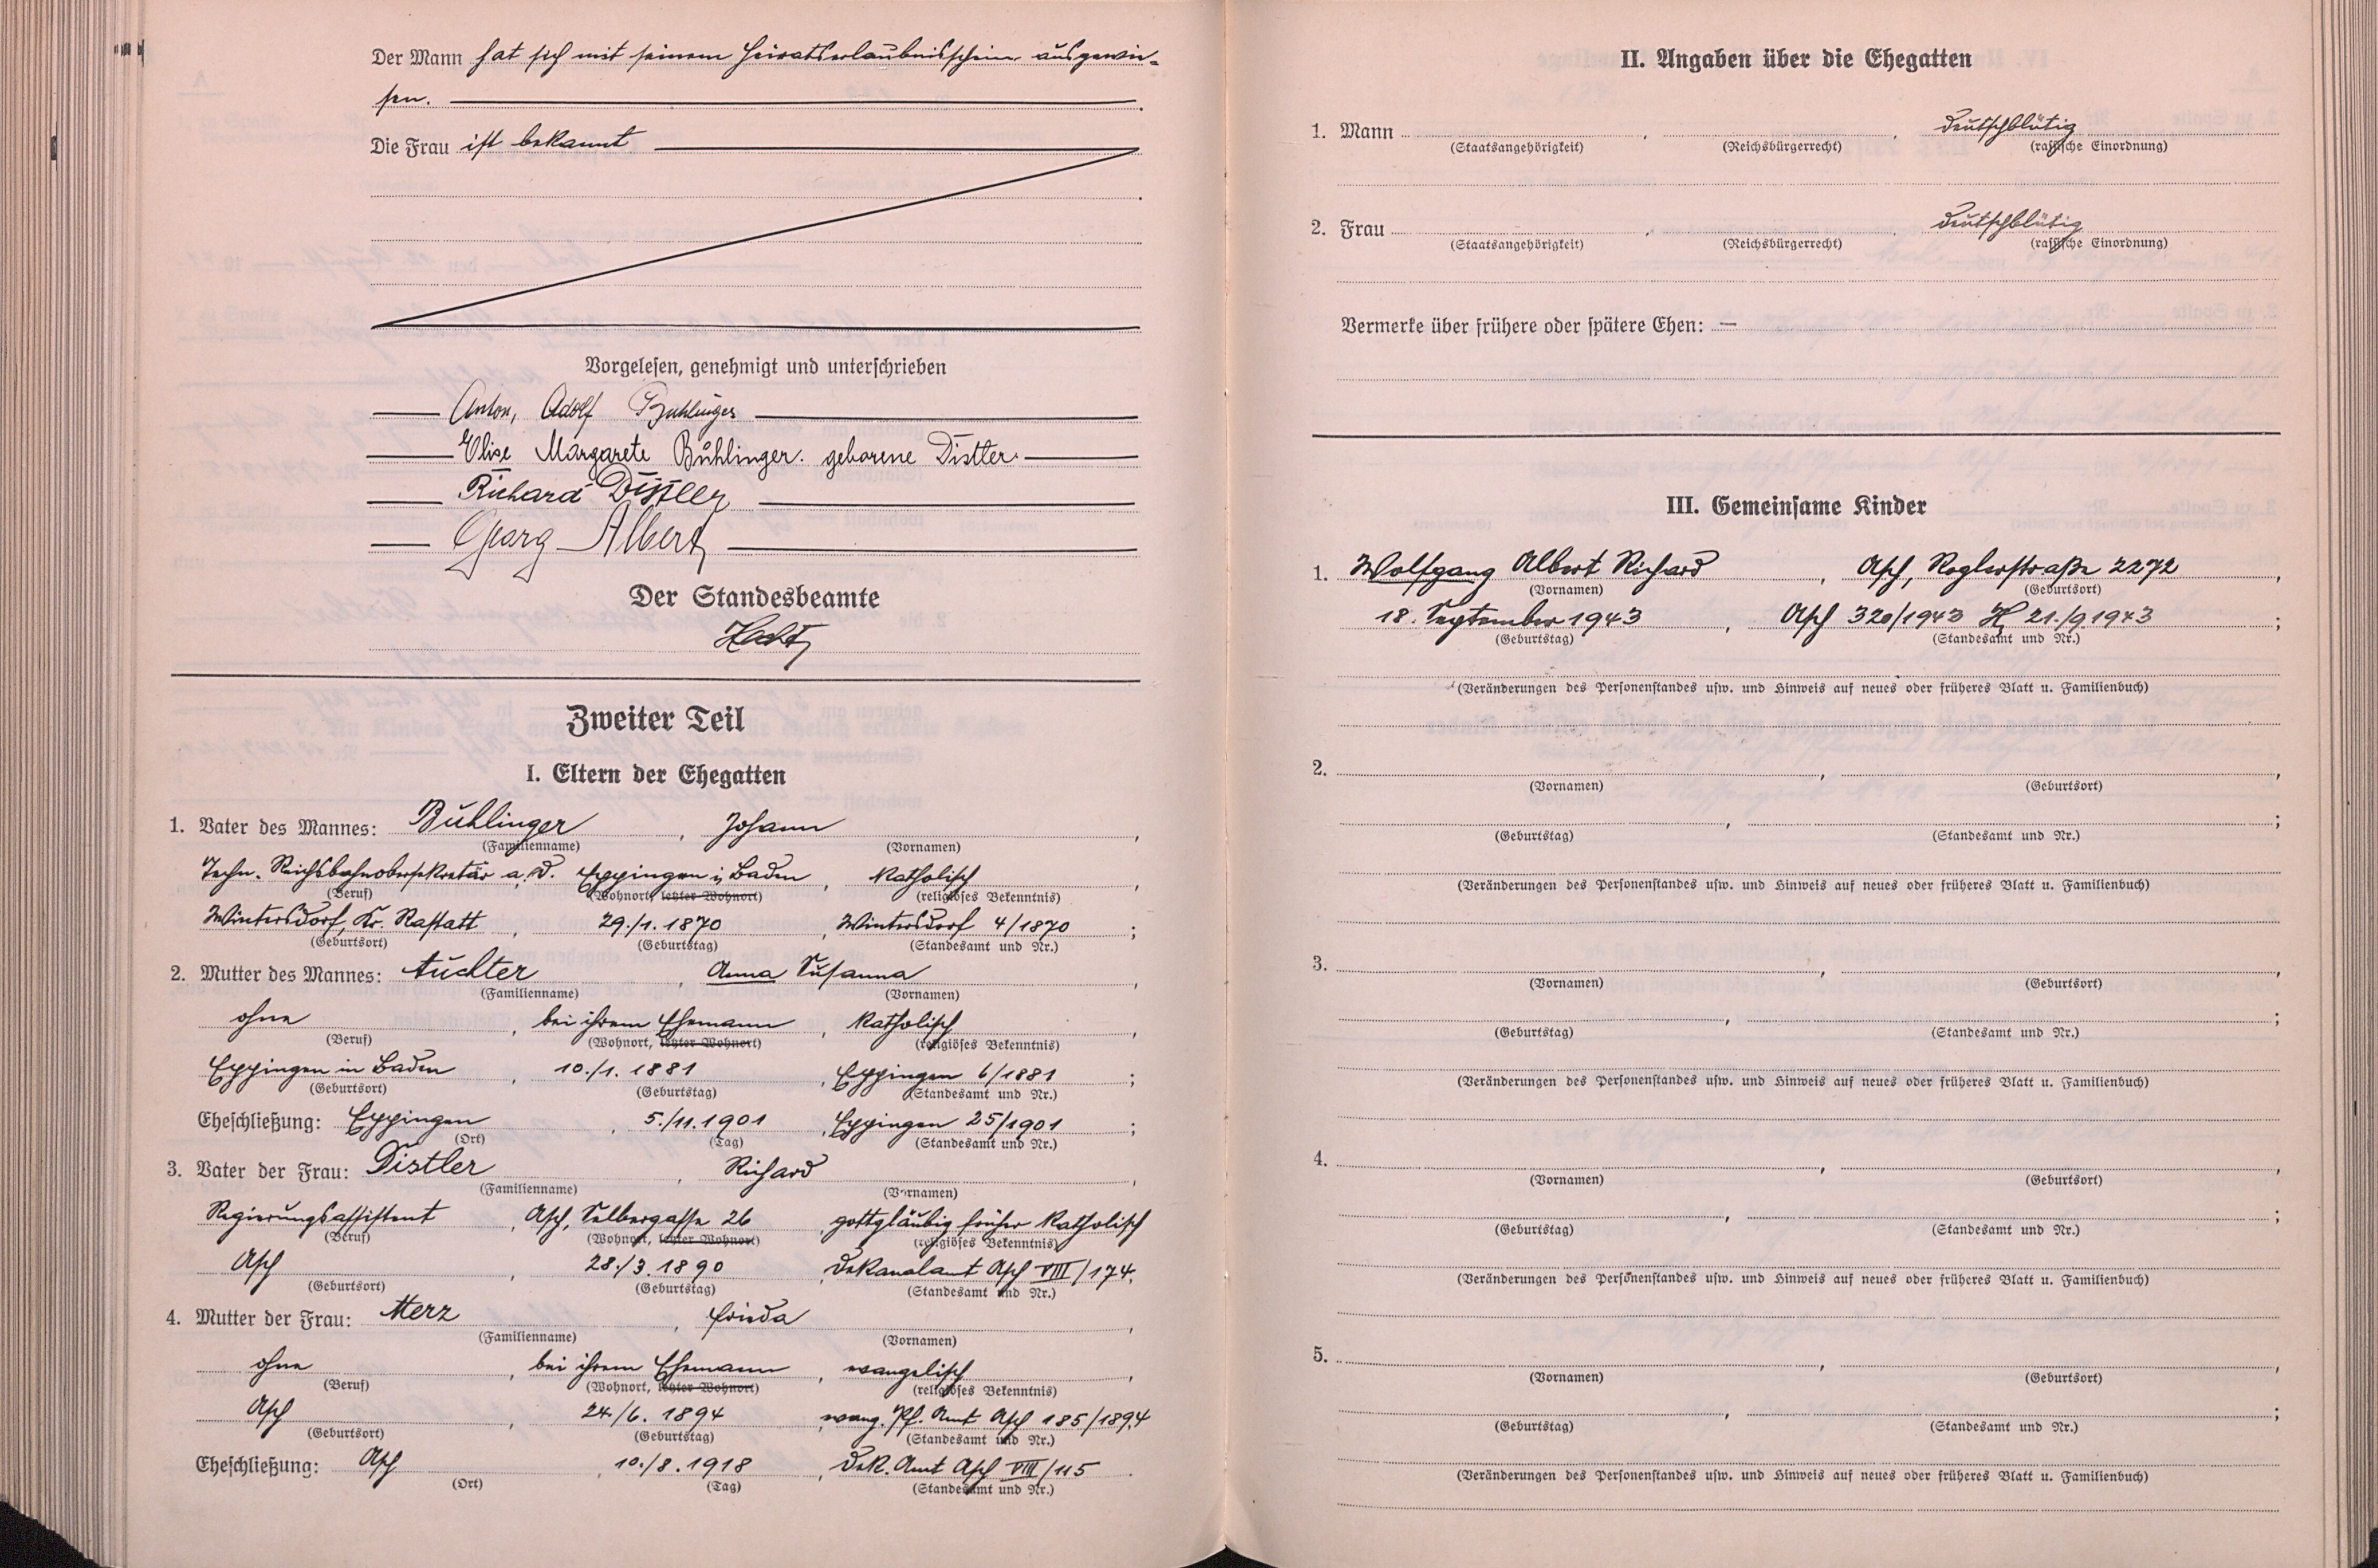 Der Mann hat sich mit seinem Heiratserlaubnisschein ausgewie-
sen.
Die Frau ist bekannt
Vorgelesen, genehmigt und unterschrieben
Anton, Adolf Buhlinger
Elise Margarete Bühlinger. geborene Distler.
Richard Distler
Georg Albert
Der Standesbeamte
Zweiter Teil
I. Eltern der Ehegatten
1. Vater des Mannes: Buhlinger, Johann,
(Familienname) (Vornamen)
Techn. Reichsbahnobersekretär a. D. Eppingen i. Baden, katholisch,
(Beruf) (Wohnort, letzter Wohnort) (religiöses Bekenntnis)
Wintersdorf, Kr. Rastatt, 29./1. 1870, Wintersdorf 4/1870;
(Geburtsort) (Geburtstag) (Standesamt und Nr.)
2. Mutter des Mannes: Auchter, Anna Susanna,
(Familienname) (Vornamen)
ohne, bei ihrem Ehemann, katholisch,
(Beruf) (Wohnort, letzter Wohnort) (religiöses Bekenntnis)
Eppingen in Baden, 10./1. 1881, Eppingen 6/1881;
(Geburtsort) (Geburtstag) (Standesamt und Nr.)
Eheschließung: Eppingen, 5./11. 1901, Eppingen 25/1901;
(Ort) (Tag) (Standesamt und Nr.)
3. Vater der Frau: Distler, Richard,
(Familienname) (Vornamen)
Regierungsassistent, Asch, Selbergasse 26, gottgläubig früher katholisch
(Beruf) (Wohnort, letzter Wohnort) (religiöses Bekenntnis)
Asch, 28./3. 1890, Dekanalamt Asch VIII/174.
(Geburtsort) (Geburtstag) (Standesamt und Nr.)
4. Mutter der Frau: Merz, Frieda,
(Familienname) (Vornamen)
ohne, bei ihrem Ehemann, evangelisch,
(Beruf) (Wohnort, letzter Wohnort) (religiöses Bekenntnis)
Asch, 24./6. 1894, evang. Pf. Amt Asch 185/1894
(Geburtsort) (Geburtstag) (Standesamt und Nr.)
Eheschließung: Asch, 10./8. 1918, Dek. Amt Asch VIII/115.
(Ort) (Tag) (Standesamt und Nr.)
II. Angaben über die Ehegatten
1. Mann, , deutschblütig
(Staatsangehörigkeit) (Reichsbürgerrecht) (rassische Einordnung)
2. Frau, , deutschblütig
(Staatsangehörigkeit) (Reichsbürgerrecht) (rassische Einordnung)
Vermerke über frühere oder spätere Ehen: —
III. Gemeinsame Kinder
1. Wolfgang Albert Richard, Asch, Roglerstraße 2272,
(Vornamen) (Geburtsort)
18. September 1943, Asch 320/1943 H 21./9. 1943;
(Geburtstag) (Standesamt und Nr.)
(Veränderungen des Personenstandes usw. und Hinweis auf neues oder früheres Blatt u. Familienbuch)
2. , ,
(Vornamen) (Geburtsort)
, ;
(Geburtstag) (Standesamt und Nr.)
(Veränderungen des Personenstandes usw. und Hinweis auf neues oder früheres Blatt u. Familienbuch)
3. , ,
(Vornamen) (Geburtsort)
, ;
(Geburtstag) (Standesamt und Nr.)
(Veränderungen des Personenstandes usw. und Hinweis auf neues oder früheres Blatt u. Familienbuch)
4. , ,
(Vornamen) (Geburtsort)
, ;
(Geburtstag) (Standesamt und Nr.)
(Veränderungen des Personenstandes usw. und Hinweis auf neues oder früheres Blatt u. Familienbuch)
5. , ,
(Vornamen) (Geburtsort)
, ;
(Geburtstag) (Standesamt und Nr.)
(Veränderungen des Personenstandes usw. und Hinweis auf neues oder früheres Blatt u. Familienbuch)